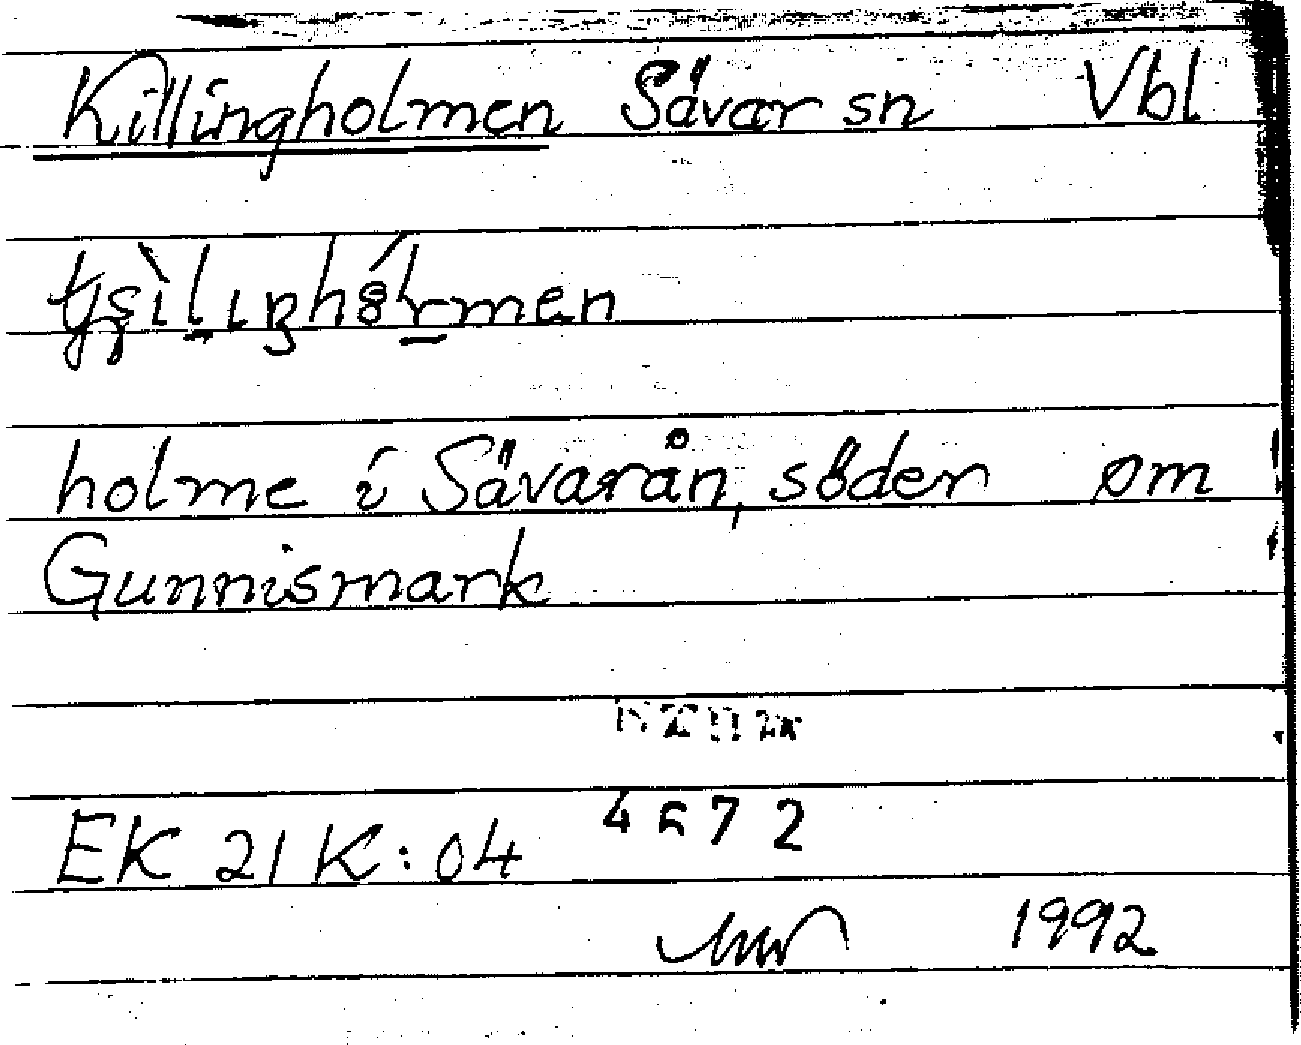 Killingholmen Sävar sn Vbl
holme i Sävarån, söder om
Gunnismark
EK 21 K:04 4672
1992